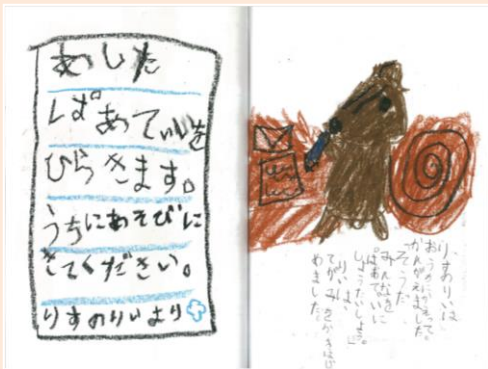 あした
ぱあていいを
ひらきます。
うちにあそびに
きてください。
りすのりいより
りすのりいは、
おうちにかえって。
かんがえました。
「そうだ
みんなを
ぱあてぃに
しょうたいしよう。」
りいは、
てがみをかきはじ
めました。